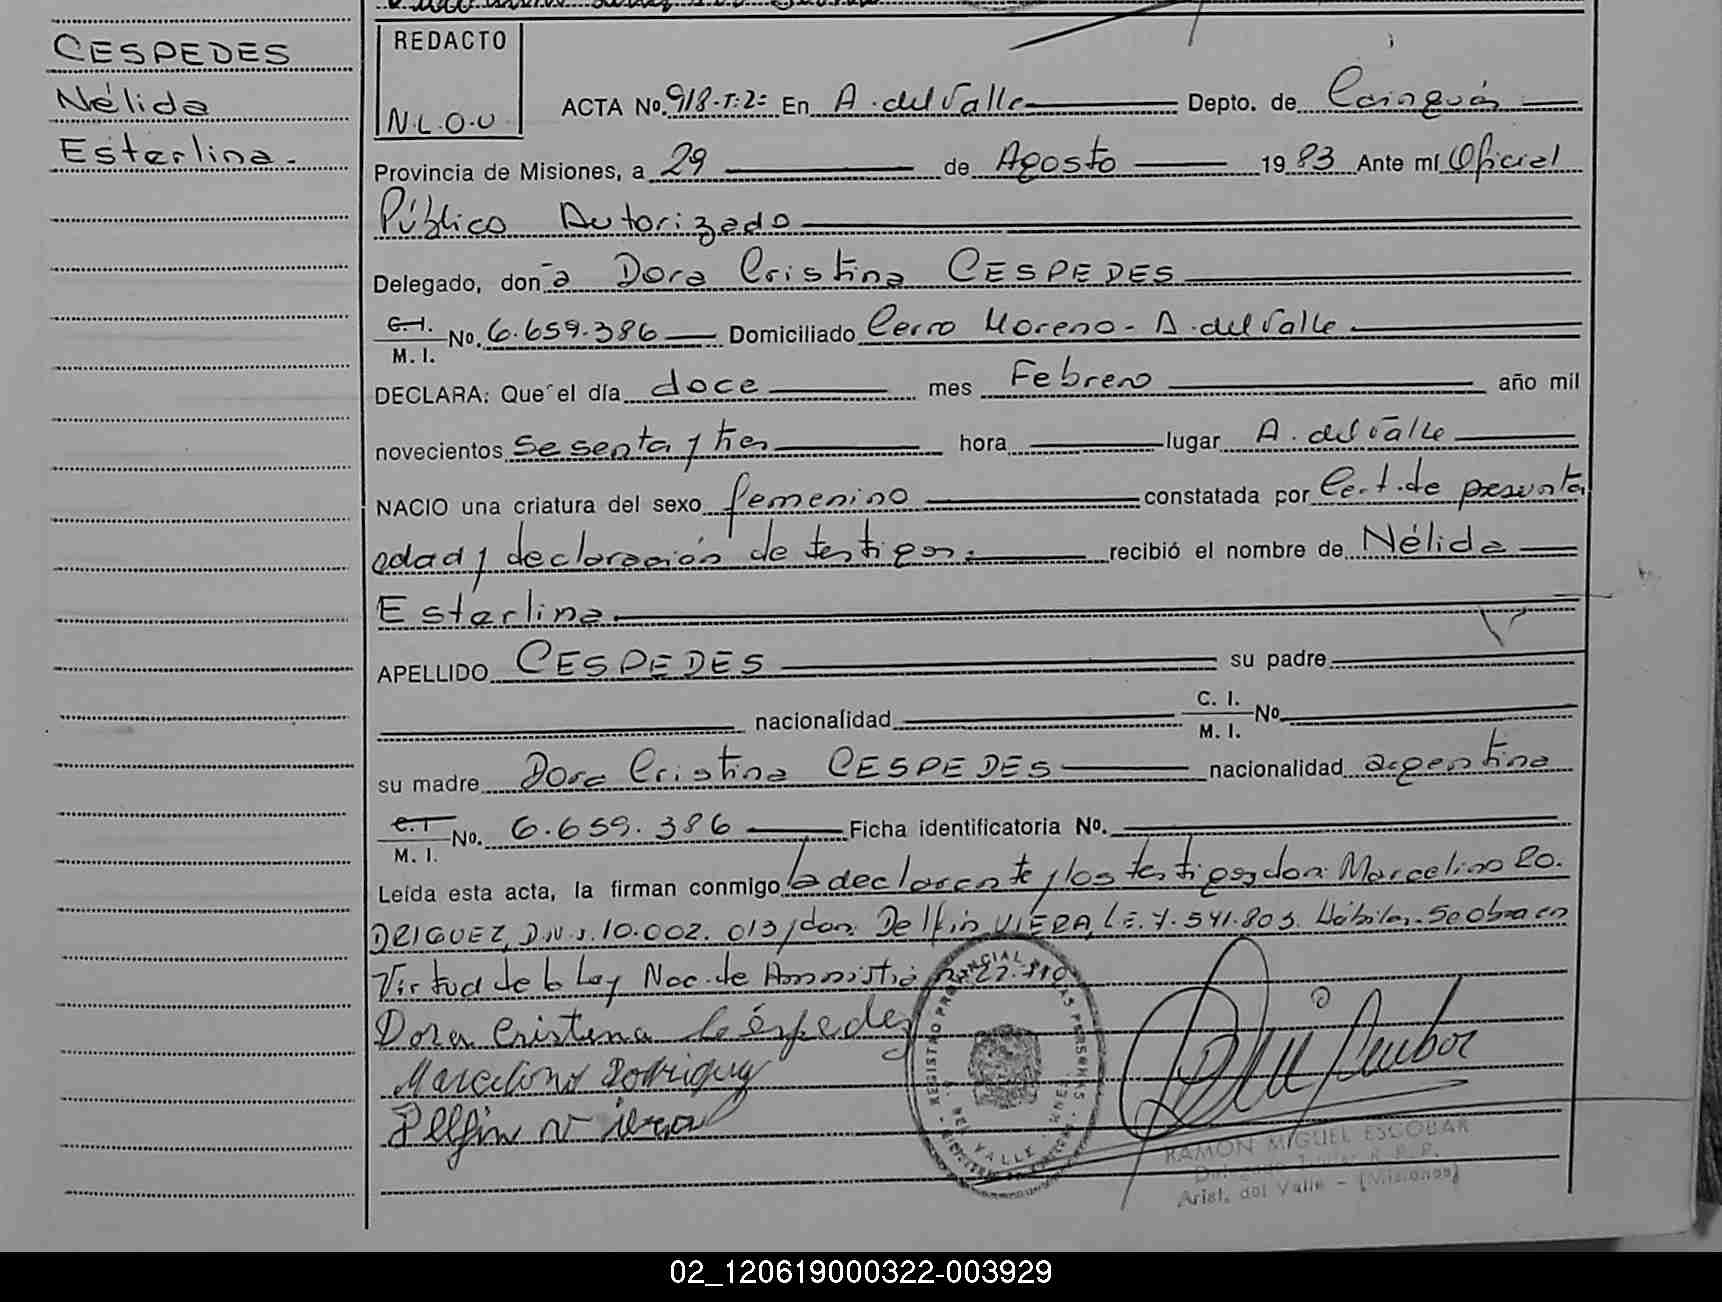 CESPEDES
Nélida
Esterlina.-
REDACTO
N.L.O.V
ACTA No. 918-T:2= En A. del Valle Depto. de Cainguás
Provincia de Misiones, a 29 de Agosto 1983 Ante mí Oficial
Público Autorizado
Delegado, don~a Dora Cristina CESPEDES
C.I.
M. I. No. 6.659.386 Domiciliado Cerro Moreno - A. del Valle
DECLARA: Que el día doce mes Febrero año mil
novecientos sesenta y tres hora lugar A. del Valle
NACIO una criatura del sexo femenino constatada por Cert. de presunta
edad y declaración de testigos. recibió el nombre de Nélida
Esterlina
APELLIDO CESPEDES su padre
nacionalidad C. I.
M. I. No
su madre Dora Cristina CESPEDES nacionalidad argentina
C.I
M. I. No. 6.659.386 Ficha identificatoria No.
Leída esta acta, la firman conmigo la declarante y los testigos don: Marcelino RO.
DRIGUEZ, D.N.I. 10.002.013 y don Delfin VIERA, L.E. 7.541.803. Hábiles. Se obra en
Virtud de la Ley Nac. de Amnistía
Dora Cristina Céspedez
Marcelino Rodriguez
Delfin Viera
REGISTRO PROVINCIAL DE LAS PERSONAS
DEL VALLE
RAMON MIGUEL ESCOBAR
Delegado Titular R. P. P.
Arist. del Valle - (Misiones)
02_120619000322-003929